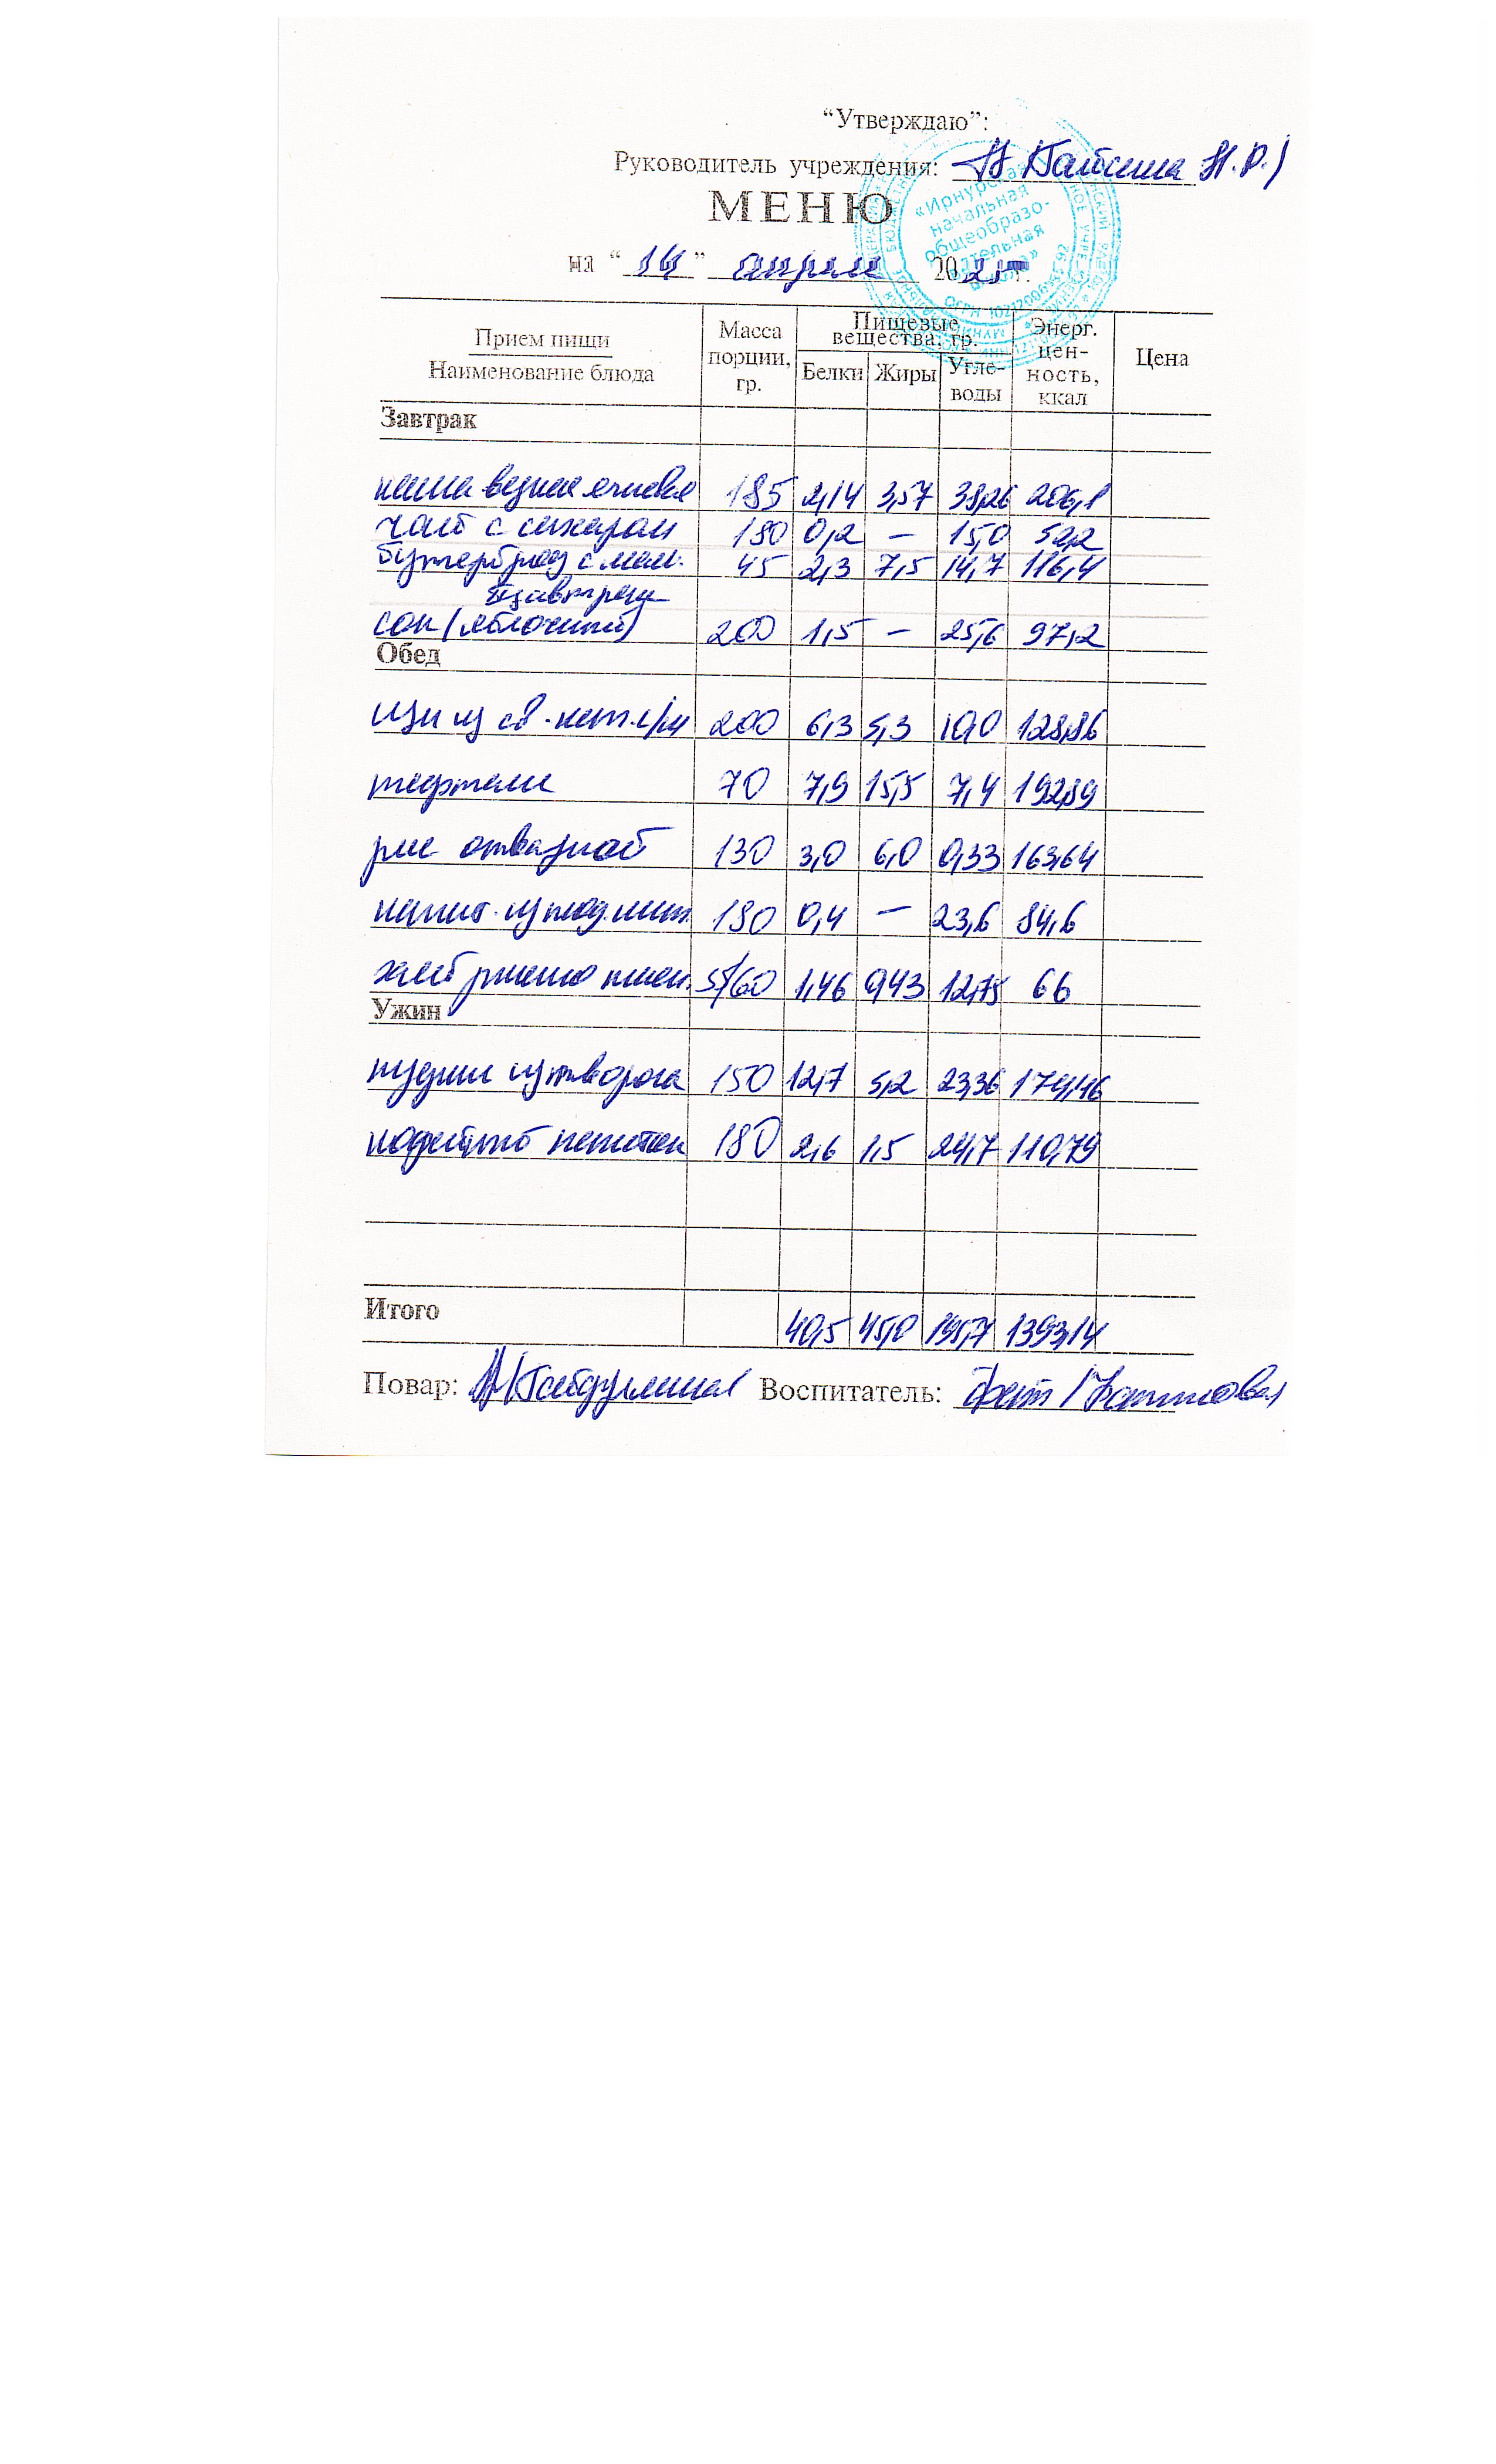 “Утверждаю”:
Руководитель учреждения: Н.Р.)
МЕНЮ
«Ирнурская
начальная
общеобразо-
вательная
на “14” апреля 2025 г.
Прием пищи
Наименование блюда
Масса порции, гр.
Пищевые вещества, гр.
Белки Жиры Угле-воды
Энерг. цен-ность, ккал
Цена
Завтрак
каша вязкая ячневая 185 2,14 3,57 38,26 206,1
чай с сахаром 180 0,2 – 15,0 59,2
бутерброд с мал. 45 2,3 7,5 14,7 116,4
II завтрак
сок (яблочный) 200 1,5 – 25,6 97,2
Обед
щи из св. кап. с/м 200 6,3 5,3 10,0 128,86
тефтели 70 7,9 15,5 7,4 192,89
рис отварной 130 3,0 6,0 0,33 163,64
напит. из плод. шип. 180 0,4 – 23,6 84,6
хлеб ржано пшен. 5/60 1,46 0,43 12,75 66
Ужин
пудинг из творога 150 12,7 5,2 23,36
кофейный напиток 180 2,6 1,5 24,7 110,79
Итого 40,5 45,0 195,7 1393,14
Повар: Гайдуллина Воспитатель: